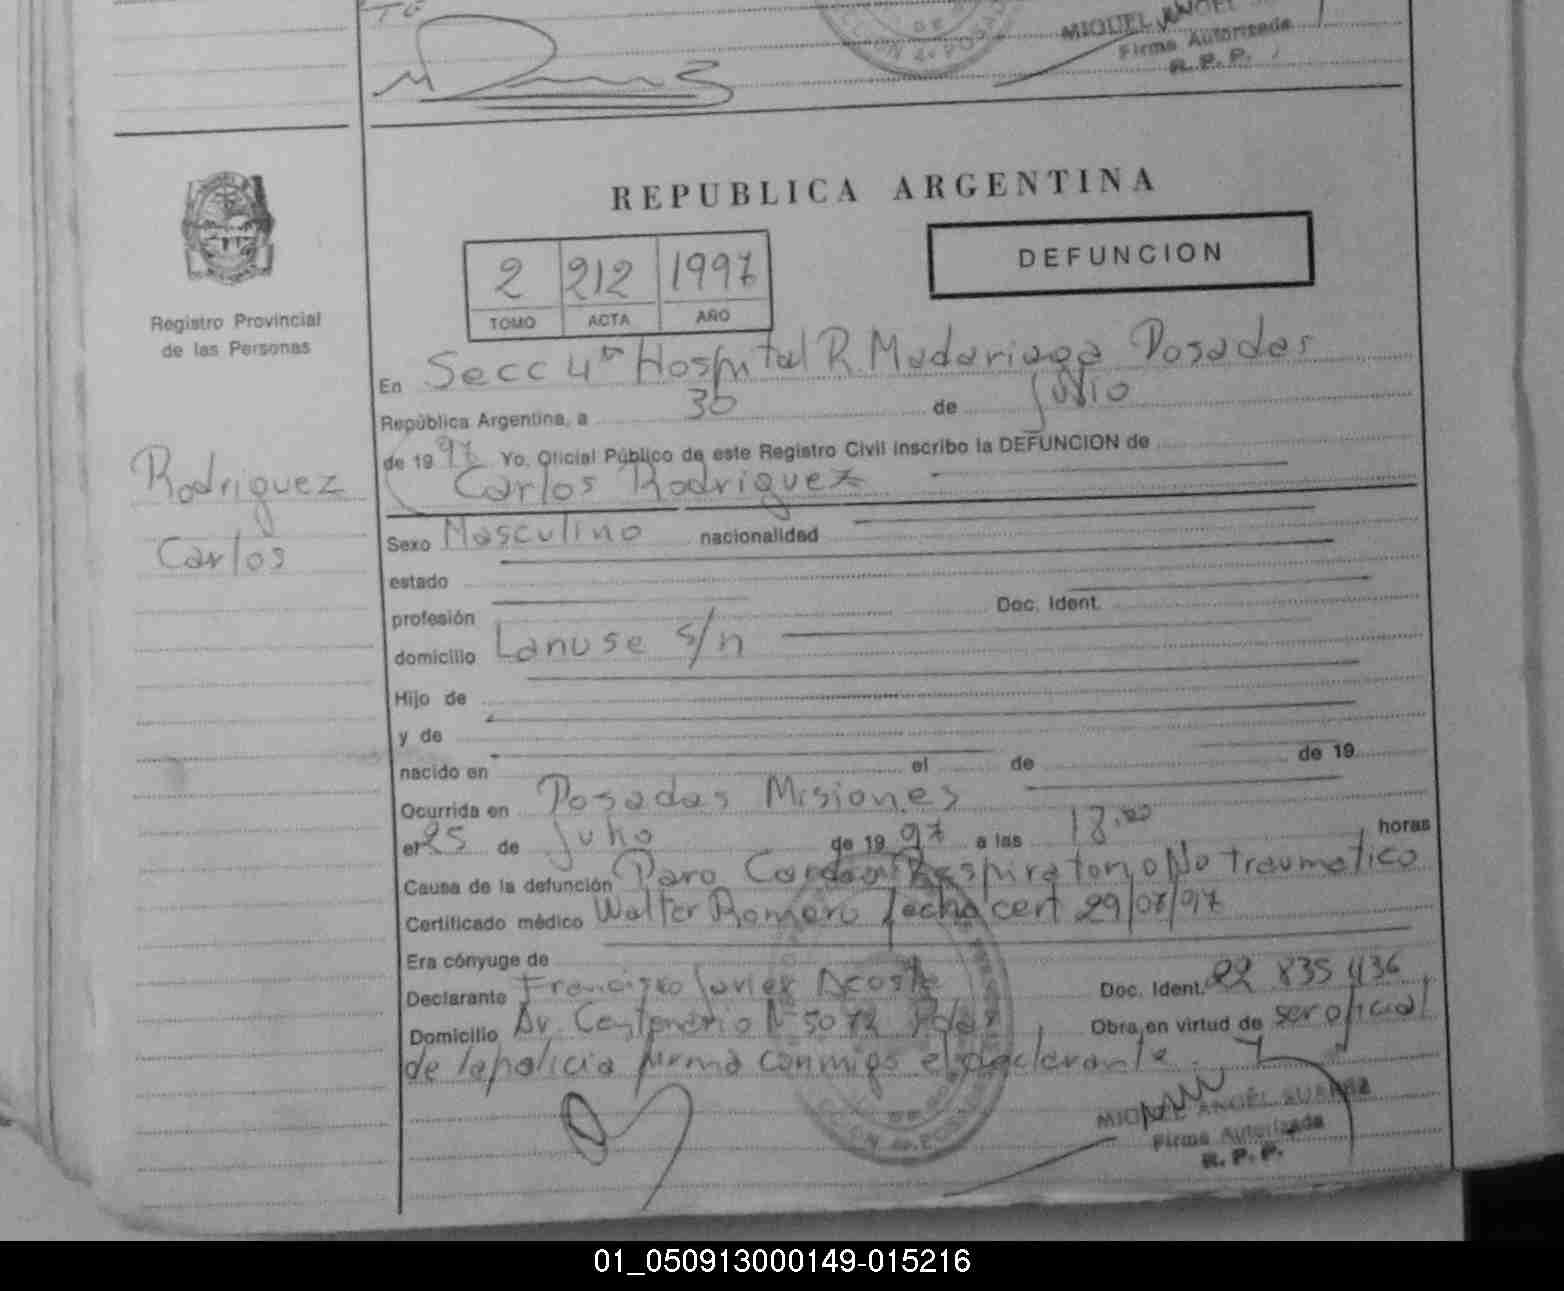 MIGUEL ANGEL
Firma Autorizada
R. P. P.
REPUBLICA ARGENTINA
DEFUNCION
2 212 1997
TOMO ACTA AÑO
Registro Provincial
de las Personas
En Secc 4ta Hospital R. Madariaga Posadas
República Argentina, a 30 de Julio
de 1997 Yo, Oficial Público de este Registro Civil inscribo la DEFUNCION de
Carlos Rodriguez
Rodriguez
Carlos
Sexo Masculino nacionalidad
estado
profesión Doc. Ident.
domicilio Lanuse s/n
Hijo de
y de
nacido en el de de 19
Ocurrida en Posadas Misiones
el 25 de Julio de 1997 a las 18.00 horas
Causa de la defunción Paro Cardio Respiratorio No traumatico
Certificado médico Walter Romero fecha cert 29/07/97
Era cónyuge de
Declarante Francisko Javier Acosta Doc. Ident. 22 835 436
Domicilio Av. Centenario N 5072 Pdas Obra en virtud de ser oficial
de la policia firma conmigo el declarante.
MIGUEL ANGEL SUAREZ
Firma Autorizada
R. P. P.
01_050913000149-015216